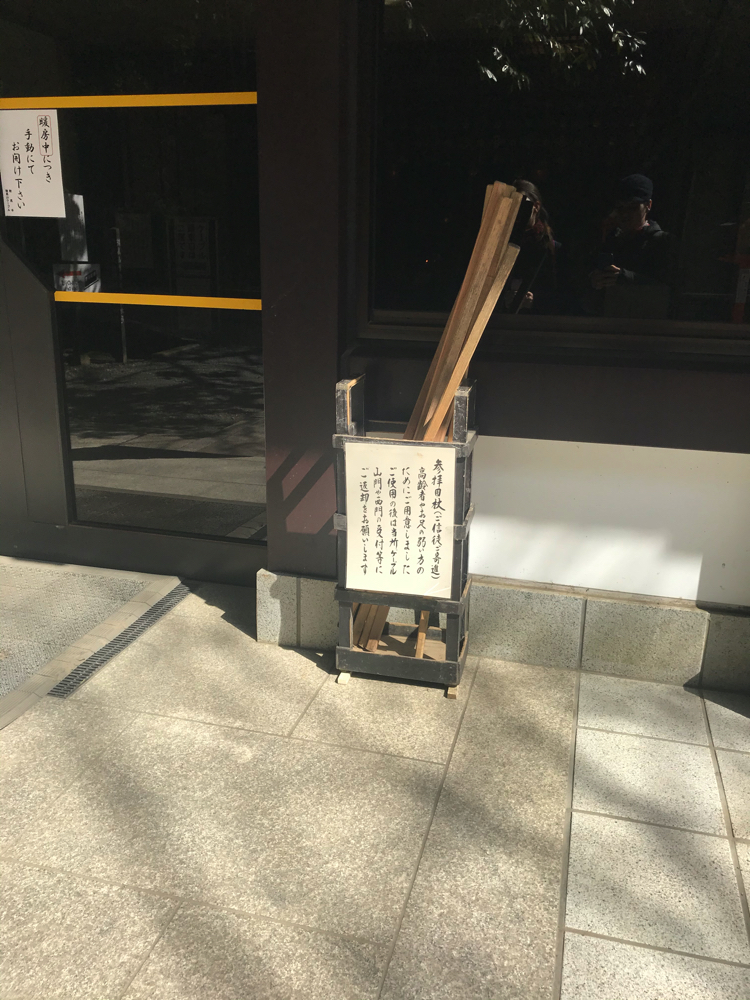 暖房中につき
手動にて
お開け下さい
参拝用杖(ご信徒ご寄進)
高齢者やお足の弱い方の
ためにご用意しました
ご使用の後は当所ケーブル
山門や西門の受付等に
ご返却をお願いします